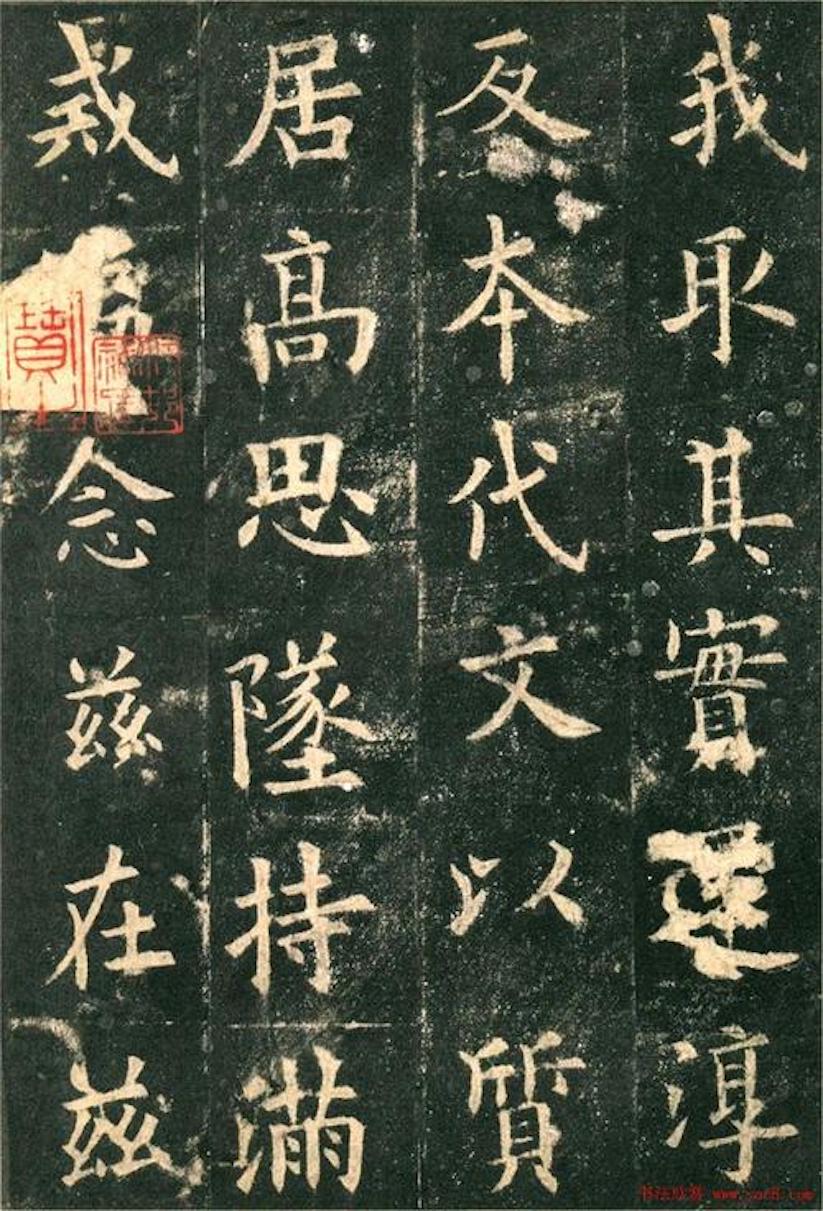 我取其實還淳
反本代文以質
居高思墜持滿
戒念茲在茲
书法欣赏 www.yac8.com